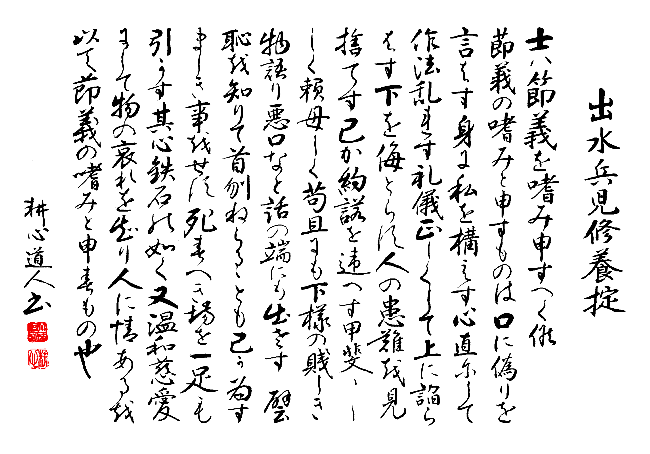 出水兵児修養掟
士ハ節義を嗜み申すへく候
節義の嗜みと申すものは口に偽りを
言はす身に私を構へす心直にして
作法乱れす礼儀正しくして上に諂ら
はす下を侮とらす人の患難を見
捨てす己か約諾を違へす甲斐〻〻
しく頼母しく苟且にも下様の賎しき
物語り悪口なと話の端にも出さす譬
恥を知りて首刎ねらるゝとも己か為す
ましき事をせす死すへき場を一足も
引かす其心鉄石の如く又温和慈愛
にして物の哀れを知り人に情あるを
以て節義の嗜みと申すもの也
耕心道人書